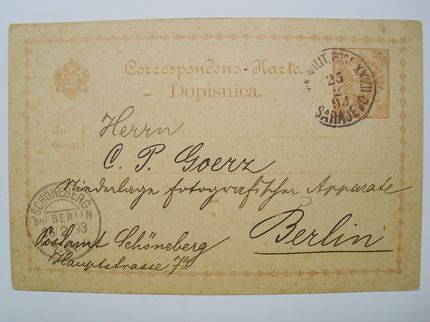 Correspondenz-Karte.
Dopisnica.
An
Gosp.
Herrn
C. P. Goerz
Niederlage fotografischer Apparate
in
u
Berlin
Postamt Schöneberg
Hauptstrasse 7a
SCHÖNEBERG
bei BERLIN
2 93
MILIT. POST XXXVII
25
2
93
SARAJEVO